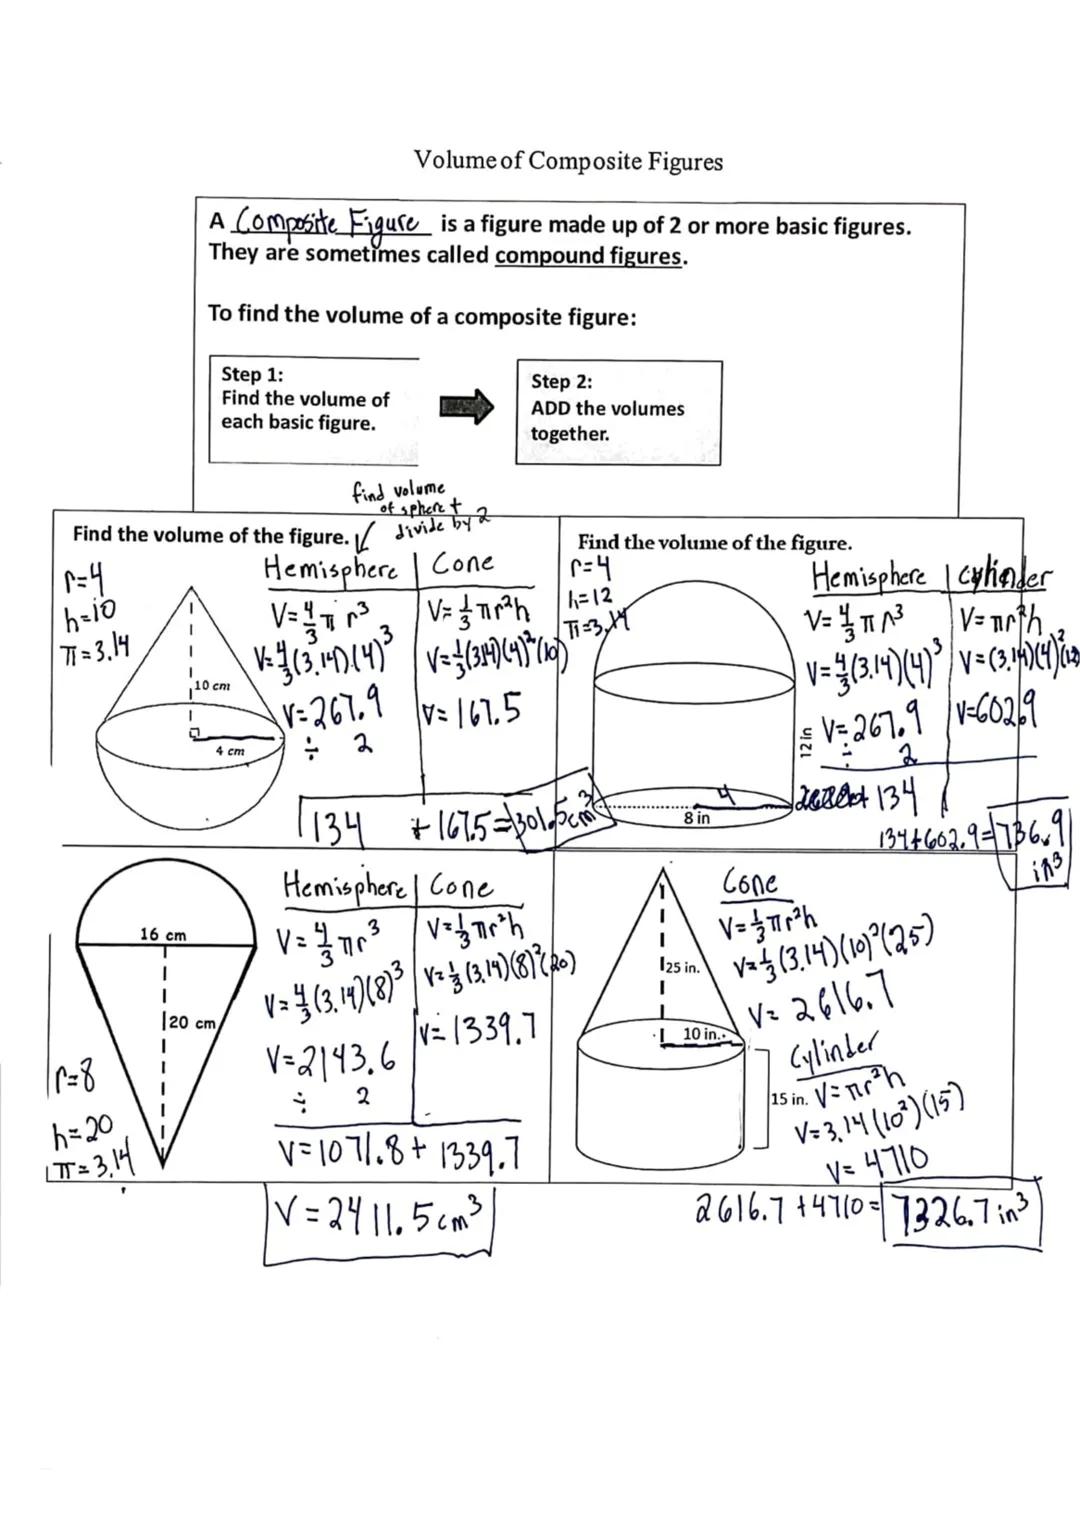 Volume of Composite Figures
A Composite Figure is a figure made up of 2 or more basic figures.
They are sometimes called compound figures.
To find the volume of a composite figure:
Step 1:
Find the volume of
each basic figure.
Step 2:
ADD the volumes
together.
find volume
of sphere +
divide by 2
Find the volume of the figure.
r=4
h=10
π=3.14
10 cm
4 cm
Hemisphere
V=4/3 π r³
V=4/3(3.14)(4)³
V=267.9
÷ 2
Cone
V=1/3πr²h
V=1/3(3.14)(4)²(10)
V=167.5
134 + 167.5=301.5cm³
Find the volume of the figure.
r=4
h=12
π=3.14
12 in
4
8 in
Hemisphere
V=4/3 π r³
V=4/3(3.14)(4)³
V=267.9
÷ 2
134
Cylinder
V=πr²h
V=(3.14)(4)²(12)
V=602.9
134+602.9=736.9
in³
16 cm
20 cm
r=8
h=20
π=3.14
Hemisphere
V=4/3πr³
V=4/3(3.14)(8)³
V=2143.6
÷ 2
Cone
V=1/3πr²h
V=1/3(3.14)(8)²(20)
V=1339.7
V=1071.8+1339.7
V=2411.5cm³
25 in.
10 in.
15 in.
Cone
V=1/3πr²h
V=1/3(3.14)(10)²(25)
V=2616.7
Cylinder
V=πr²h
V=3.14(10²)(15)
V=4710
2616.7+4710=7326.7in³